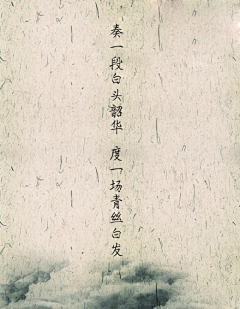 奏一段白头韶华 度一场青丝白发